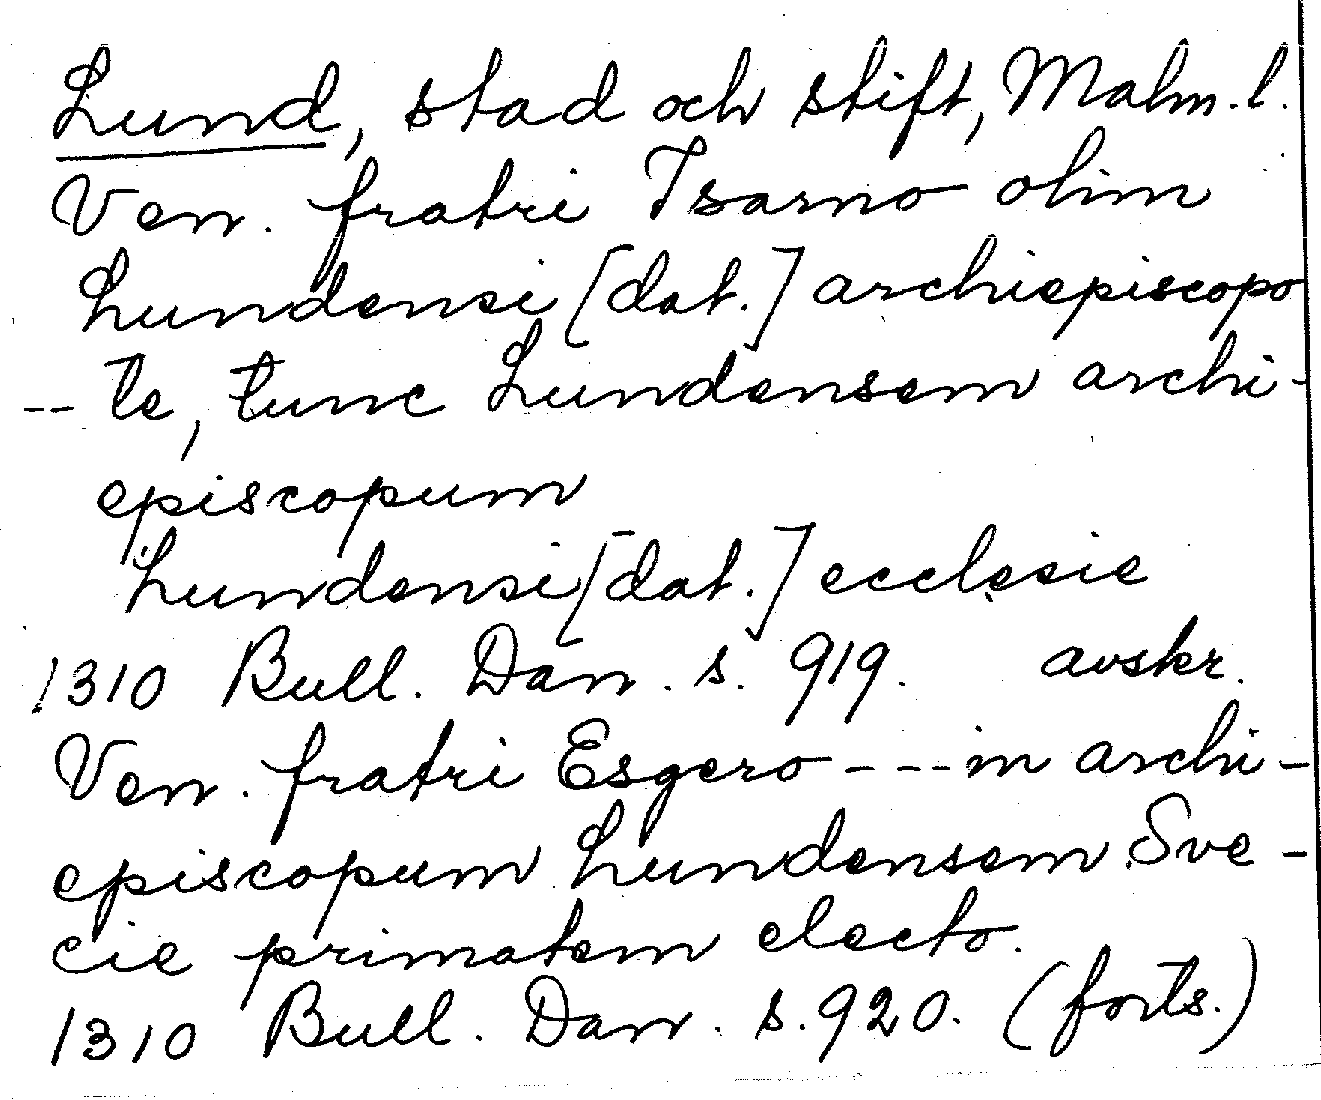 Lund, stad och stift, Malm. l.
Ven. fratri Isarno olim
Lundensi [dat.] archiepiscopo
--- te, tunc Lundensem archi-
episcopum
Lundensi [dat.] ecclesie
1310 Bull. Dan. s. 919. avskr.
Ven. fratri Esgero --- in archi-
episcopum Lundensem Sve-
cie primatem electo.
1310 Bull. Dan. s. 920. (forts.)